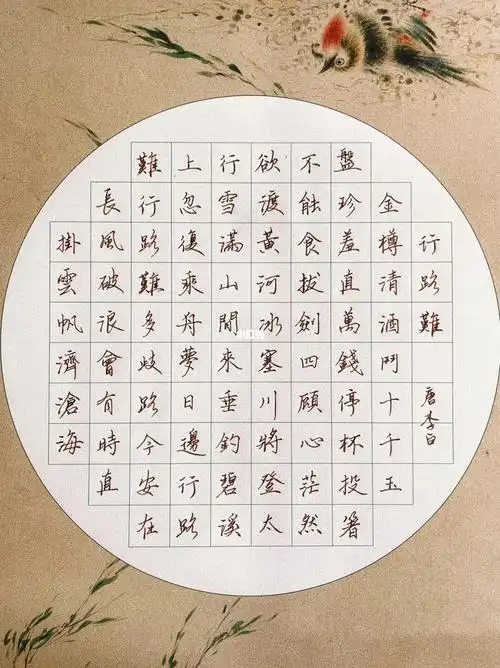 行路難
唐李白
金樽清酒鬥十千玉
盤珍羞直萬錢停杯投箸
不能食拔劍四顧心茫然
欲渡黃河冰塞川將登太
行雪滿山閒來垂釣碧溪
上忽復乘舟夢日邊行路
難行路難多歧路今安在
長風破浪會有時直
掛雲帆濟滄海